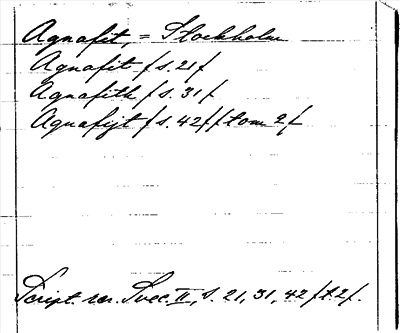 Agnafit, = Stockholm
Agnafit / s. 21 /
Agnafith / s. 31 /
Agnafijt / s. 42 / / tom 2 /
Script. rer. Svec. II, s. 21, 31, 42 / t. 2 /.